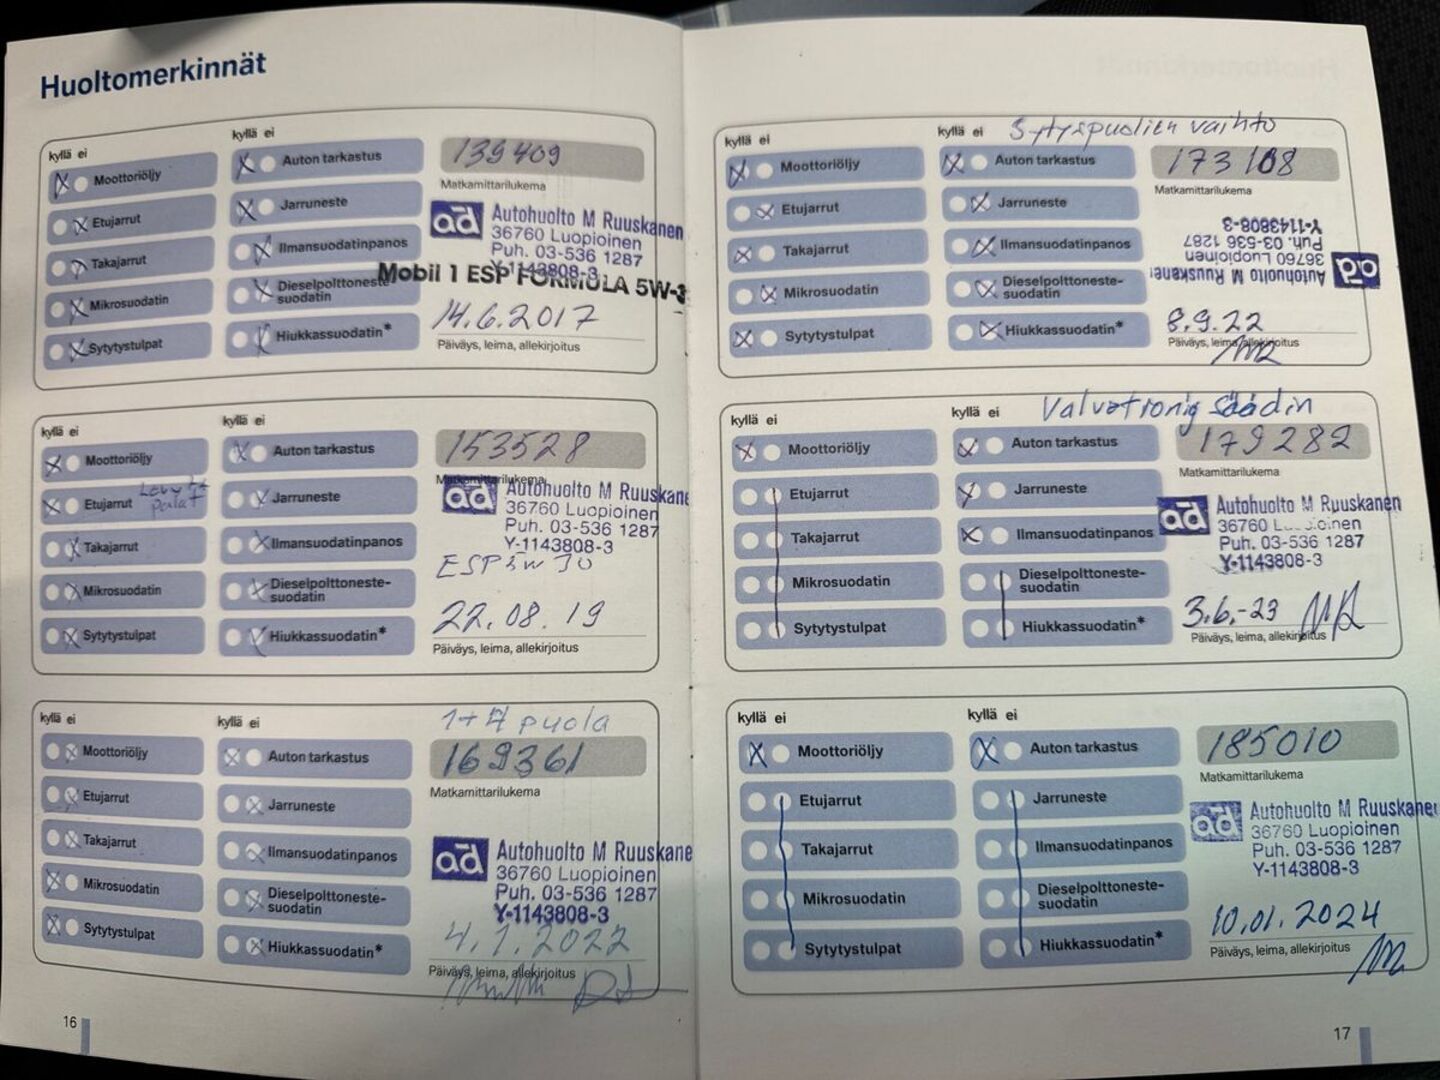 Huoltomerkinnät
kyllä ei
kyllä ei
Moottoriöljy
Auton tarkastus
139409
Matkamittarilukema
Etujarrut
Jarruneste
Takajarrut
Ilmansuodatinpanos
Mikrosuodatin
Dieselpolttoneste-
suodatin
Sytytystulpat
Hiukkassuodatin*
ad
Autohuolto M Ruuskanen
36760 Luopioinen
Puh. 03-536 1287
Y-1143808-3
Mobil 1 ESP FORMULA 5W-3
14.6.2017
Päiväys, leima, allekirjoitus
kyllä ei
kyllä ei
Moottoriöljy
Auton tarkastus
153528
Matkamittarilukema
Etujarrut
Levyt
palat
Jarruneste
Takajarrut
Ilmansuodatinpanos
Mikrosuodatin
Dieselpolttoneste-
suodatin
Sytytystulpat
Hiukkassuodatin*
ad
Autohuolto M Ruuskane
36760 Luopioinen
Puh. 03-536 1287
Y-1143808-3
ESP 5w 30
22.08.19
Päiväys, leima, allekirjoitus
kyllä ei
kyllä ei
1+4 puola
Moottoriöljy
Auton tarkastus
169361
Matkamittarilukema
Etujarrut
Jarruneste
Takajarrut
Ilmansuodatinpanos
Mikrosuodatin
Dieselpolttoneste-
suodatin
Sytytystulpat
Hiukkassuodatin*
ad
Autohuolto M Ruuskane
36760 Luopioinen
Puh. 03-536 1287
Y-1143808-3
4.1.2022
Päiväys, leima, allekirjoitus
16
kyllä ei
kyllä ei
Sytyspuolien vaihto
Moottoriöljy
Auton tarkastus
173108
Matkamittarilukema
Etujarrut
Jarruneste
Takajarrut
Ilmansuodatinpanos
Mikrosuodatin
Dieselpolttoneste-
suodatin
Sytytystulpat
Hiukkassuodatin*
ad
Autohuolto M Ruuskanen
36760 Luopioinen
Puh. 03-536 1287
Y-1143808-3
8.9.22
Päiväys, leima, allekirjoitus
kyllä ei
kyllä ei
Valvetronig säädin
Moottoriöljy
Auton tarkastus
179282
Matkamittarilukema
Etujarrut
Jarruneste
Takajarrut
Ilmansuodatinpanos
Mikrosuodatin
Dieselpolttoneste-
suodatin
Sytytystulpat
Hiukkassuodatin*
ad
Autohuolto M Ruuskanen
36760
Puh. 03-536 1287
Y-1143808-3
3.6.-23 MR
Päiväys, leima, allekirjoitus
kyllä ei
kyllä ei
Moottoriöljy
Auton tarkastus
185010
Matkamittarilukema
Etujarrut
Jarruneste
Takajarrut
Ilmansuodatinpanos
Mikrosuodatin
Dieselpolttoneste-
suodatin
Sytytystulpat
Hiukkassuodatin*
ad
Autohuolto M Ruuskanen
36760 Luopioinen
Puh. 03-536 1287
Y-1143808-3
10.01.2024
Päiväys, leima, allekirjoitus
17